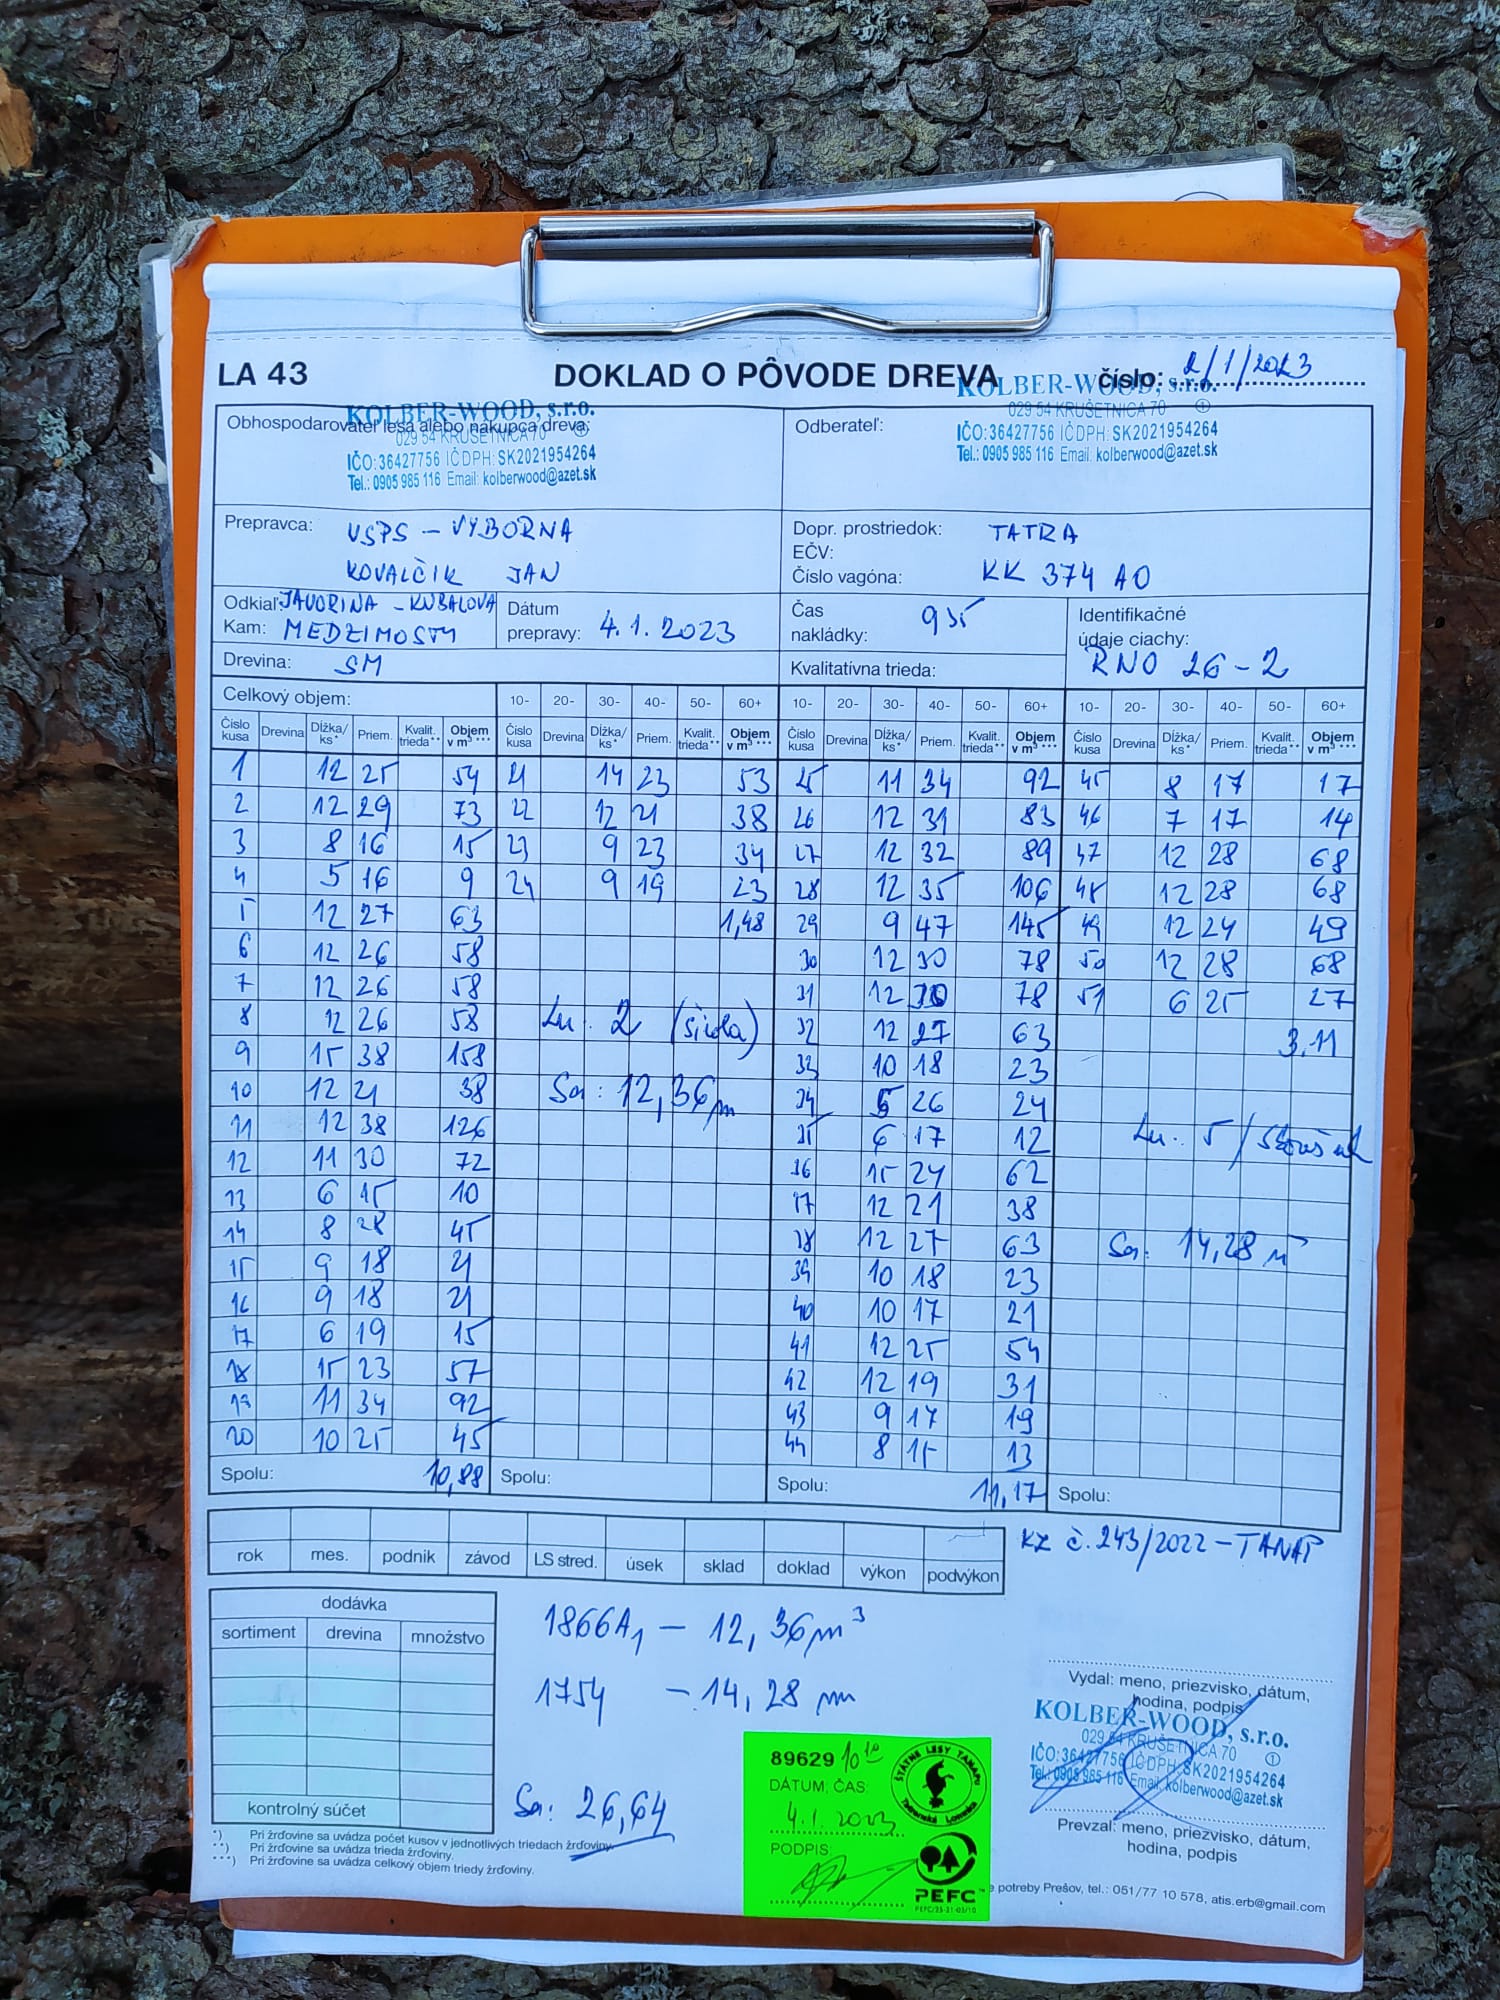 LA 43 DOKLAD O PÔVODE DREVA číslo: 2/1/2023
Obhospodarovateľ lesa alebo nákupca dreva:
KOLBER-WOOD, s.r.o.
029 54 KRUŠETNICA 70 ①
IČO:36427756 IČDPH:SK2021954264
Tel.: 0905 985 116 Email: kolberwood@azet.sk
Odberateľ:
KOLBER-WOOD, s.r.o.
029 54 KRUŠETNICA 70 ①
IČO:36427756 IČDPH:SK2021954264
Tel.: 0905 985 116 Email: kolberwood@azet.sk
Prepravca: VSPS - VÝBORNA
KOVALČIK JAN
Dopr. prostriedok: TATRA
EČV:
Číslo vagóna: KK 374 AO
Odkiaľ: JAVORINA - KUBALOVA
Kam: MEDZIMOSTY
Dátum
prepravy: 4.1.2023
Čas
nakládky: 9 35
Identifikačné
údaje ciachy:
RNO 26-2
Drevina: SM
Kvalitatívna trieda:
Celkový objem: 10- 20- 30- 40- 50- 60+ 10- 20- 30- 40- 50- 60+ 10- 20- 30- 40- 50- 60+
Číslo kusa Drevina Dĺžka/ ks* Priem. Kvalit. trieda** Objem v m³*** Číslo kusa Drevina Dĺžka/ ks* Priem. Kvalit. trieda** Objem v m³*** Číslo kusa Drevina Dĺžka/ ks* Priem. Kvalit. trieda** Objem v m³*** Číslo kusa Drevina Dĺžka/ ks* Priem. Kvalit. trieda** Objem v m³***
1 12 25 54 21 14 23 53 25 11 34 92 45 8 17 17
2 12 29 73 22 12 21 38 26 12 31 83 46 7 17 14
3 8 16 15 23 9 23 34 27 12 32 89 47 12 28 68
4 5 16 9 24 9 19 23 28 12 35 106 48 12 28 68
5 12 27 63 1,48 29 9 47 145 49 12 24 49
6 12 26 58 30 12 30 78 50 12 28 68
7 12 26 58 31 12 30 78 51 6 25 27
8 12 26 58 32 12 27 63 3.11
9 15 38 158 33 10 18 23
10 12 21 38 34 5 26 24
11 12 38 126 35 6 17 12
12 11 30 72 36 15 24 62
13 6 15 10 37 12 21 38
14 8 28 45 38 12 27 63
15 9 18 21 39 10 18 23
16 9 18 21 40 10 17 21
17 6 19 15 41 12 25 54
18 15 23 57 42 12 19 31
19 11 34 92 43 9 17 19
20 10 25 45 44 8 15 13
2
Sa: 12,36 m
5
Sa: 14,28 m
Spolu: 10,88 Spolu: Spolu: 11,17 Spolu:
KZ č. 243/2022 - TANAP
rok mes. podnik závod LS stred. úsek sklad doklad výkon podvýkon
dodávka
sortiment drevina množstvo
kontrolný súčet
1866A1 - 12,36 m³
1754 - 14,28 m
Sa: 26,64
*) Pri žrďovine sa uvádza počet kusov v jednotlivých triedach žrďoviny.
**) Pri žrďovine sa uvádza trieda žrďoviny.
***) Pri žrďovine sa uvádza celkový objem triedy žrďoviny.
89629 10 10
DÁTUM, ČAS:
4.1.2023
PODPIS:
ŠTÁTNE LESY TANAPu
Tatranská Lomnica
PEFC
PEFC/23-31-03/10
Vydal: meno, priezvisko, dátum,
hodina, podpis
KOLBER-WOOD, s.r.o.
029 54 KRUŠETNICA 70 ①
IČO:36427756 IČDPH:SK2021954264
Tel.: 0905 985 116 Email: kolberwood@azet.sk
Prevzal: meno, priezvisko, dátum,
hodina, podpis
potreby Prešov, tel.: 051/77 10 578, atis.erb@gmail.com